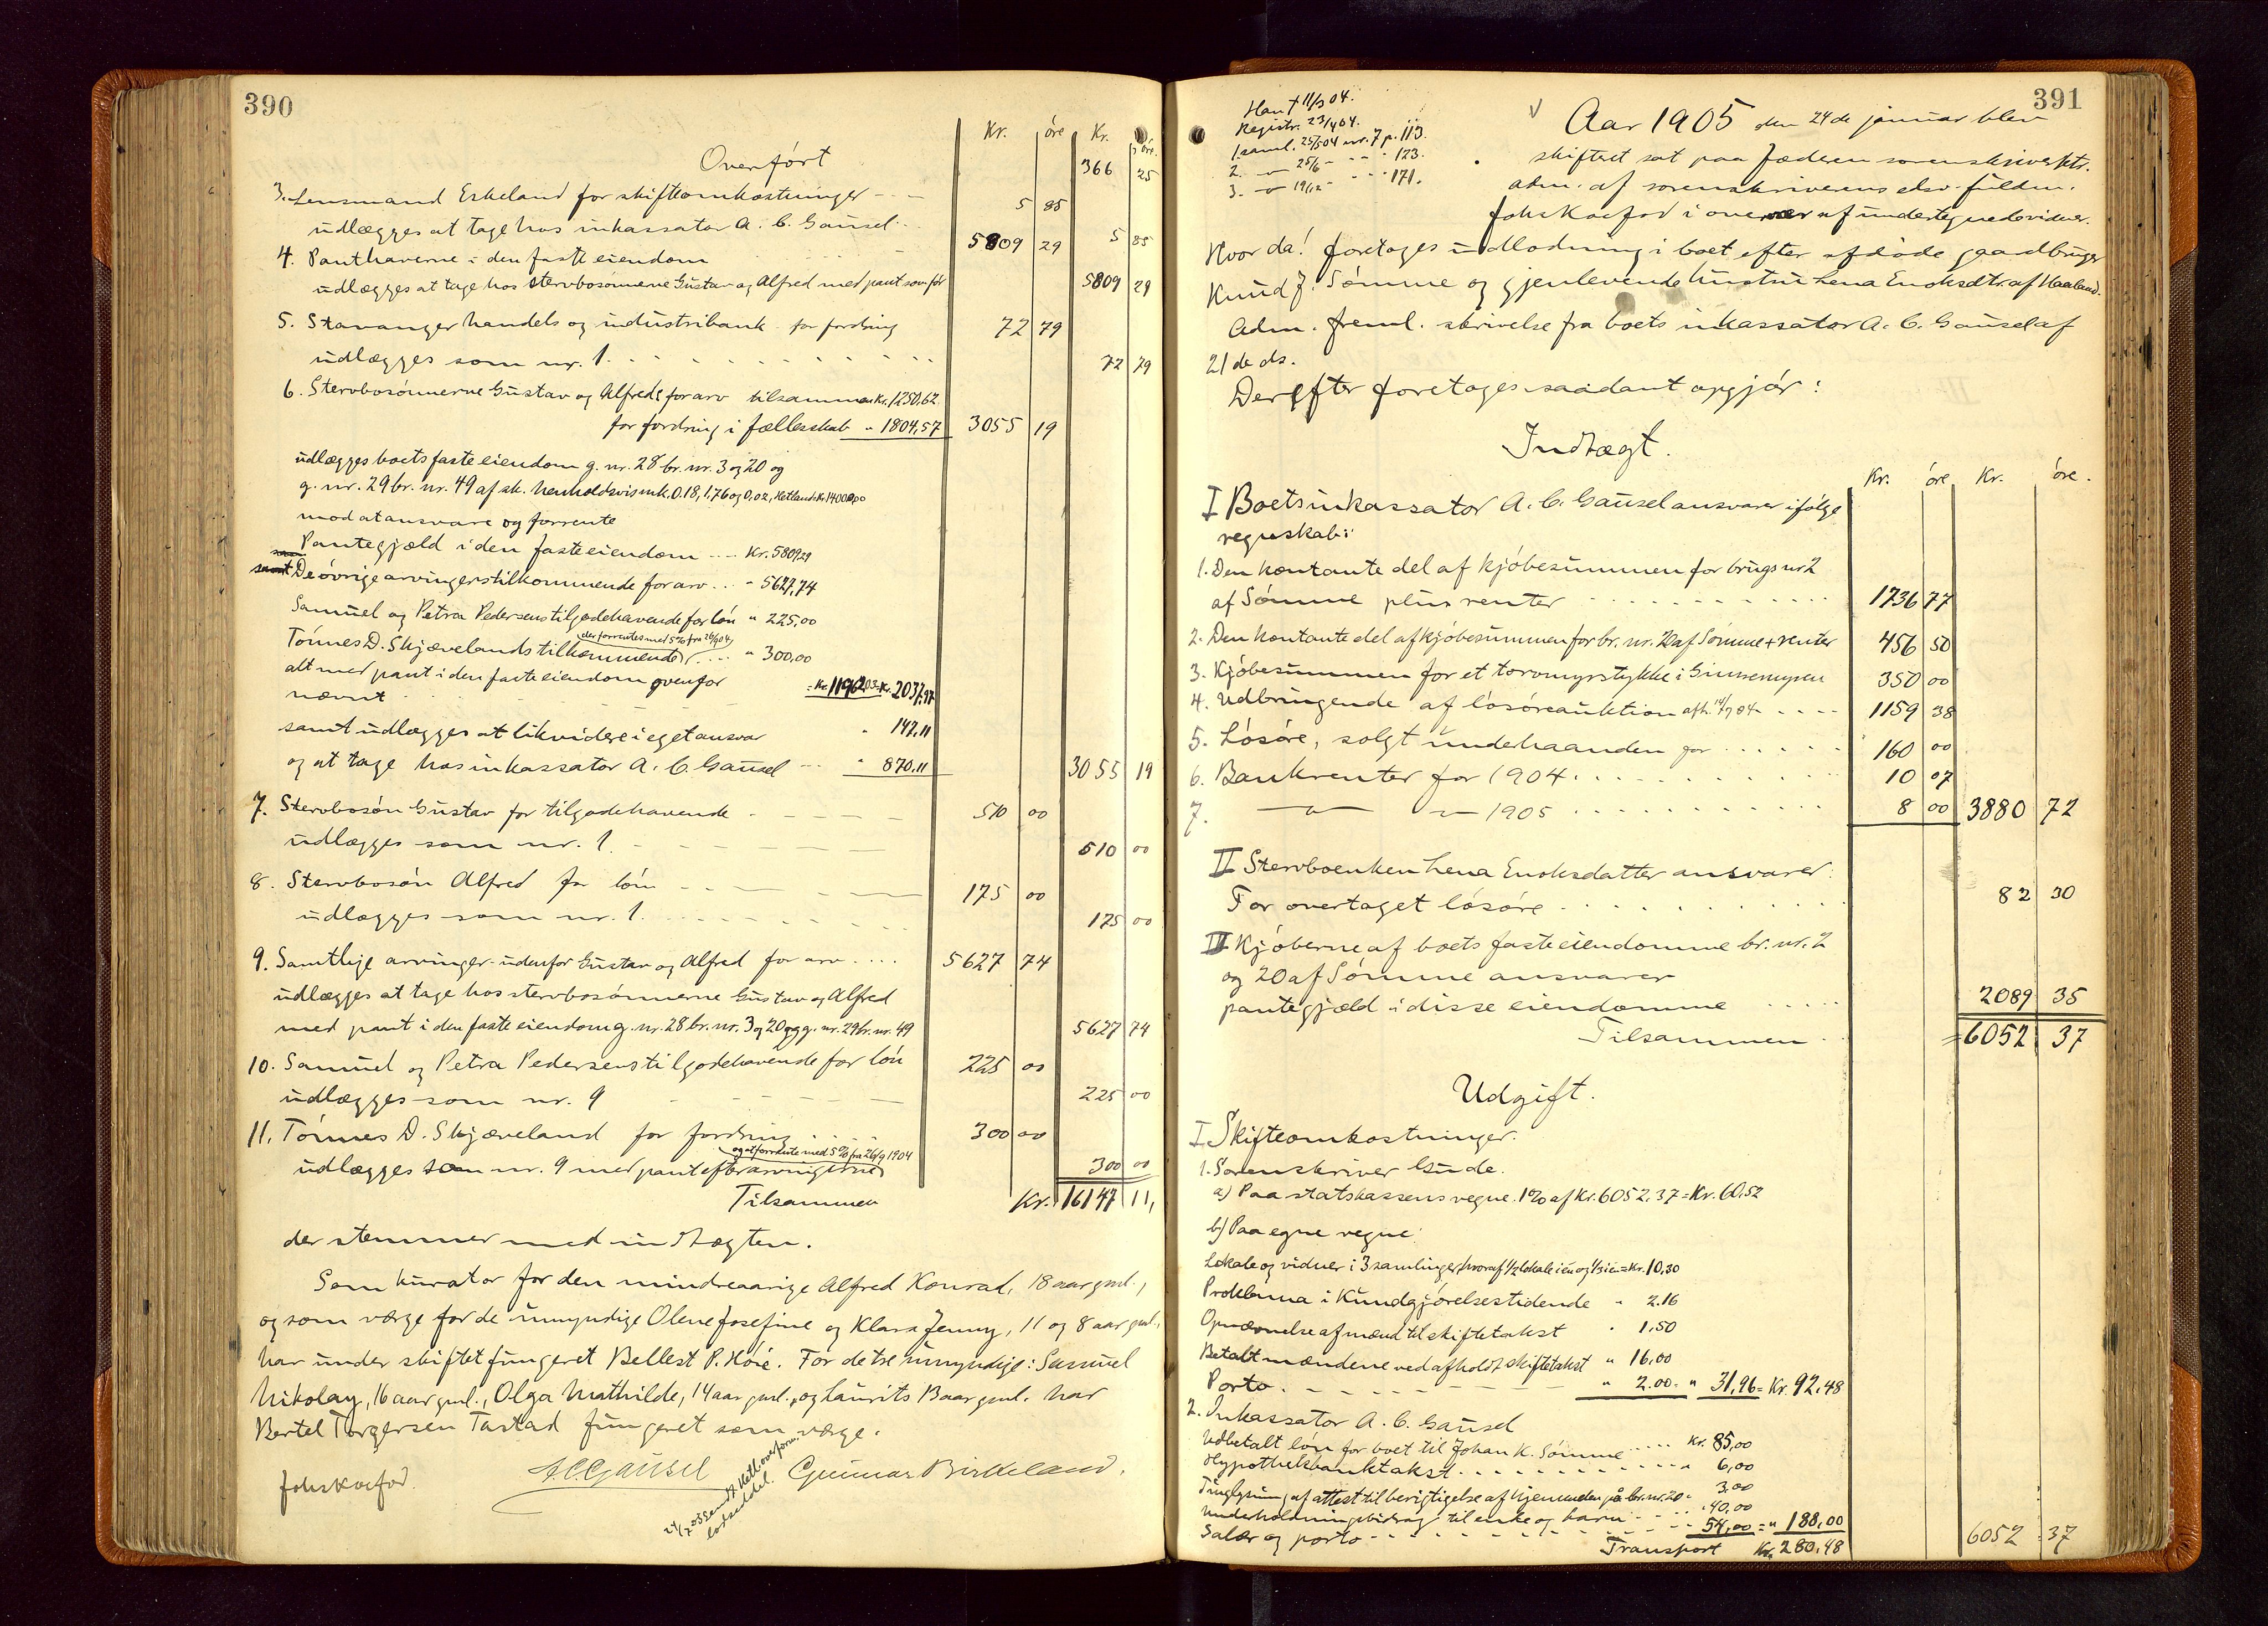 390
Kr. öre Kr. öre.
Overført 366 25
3. Lensmand Eskeland for skifteomkostninger 5 85
udlægges at tage hos inkassator A. C. Gausel 5 85
4. Panthaverne i den faste eiendom 5809 29
udlægges at tage hos stervbosønnerne Gustav og Alfred med pant som før 5809 29
5. Stavanger handels og industribank for fordring 72 79
udlægges som nr. 1. 72 79
6. Stervbosønnerne Gustav og Alfreds for arv tilsammen Kr. 1250,62
for fordring i fællesskab " 1804,57 3055 19
udlægges boets faste eiendom g. nr. 28 br. nr. 3 og 20 og
g. nr. 29 br. nr. 49 af sk. henholdsvis mk. 0.18, 1,76 og 0,02, Hetland: Kr. 14000,00
mod at ansvare og forrente
Pantegjæld i den faste eiendom Kr. 5809,29
De øvrige arvingers tilkommende for arv " 5627,74
Samuel og Petra Pedersens tilgodehavende for løn " 225,00
der forrentes med 5% fra 26/9 04
Tønnes D. Skjævelands tilkommende " 300,00
alt med pant i den faste eiendom ovenfor
nævnt = Kr. 11962,03 = Kr. 2037,97
samt udlægges at likvidere i eget ansvar " 147,11
og at tage hos inkassator A. C. Gausel " 870,11 3055 19
7. Stervbosøn Gustav for tilgodehavende 510 00
udlægges som nr. 1. 510 00
8. Stervbosøn Alfred for løn 175 00
udlægges som nr. 1. 175 00
9. Samtlige arvinger udenfor Gustav og Alfred for arv 5627 74
udlægges at tage hos stervbosønnerne Gustav og Alfred
med pant i den faste eiendom g. nr. 28 br. nr. 3 og 20 og g. nr. 29 br. nr. 49 5627 74
10. Samuel og Petra Pedersens tilgodehavende for løn 225 00
udlægges som nr. 9 225 00
11. Tønnes D. Skjæveland for fordring 300 00
og at forrente med 5% fra 26/9 1904
udlægges som nr. 9 med pant efter arvingerne 300 00
Tilsammen Kr. 16147 11,
der stemmer med indtægten.
Som kurator for den mindreaarige Alfred Konrad, 18 aar gml.,
og som værge for de umyndige Olene Josefine og Klara Jenny, 11 og 8 aar gml.,
har under skiftet fungeret Bellest P. Høie. For de tre umyndige: Samuel
Nikolay, 16 aar gml., Olga Mathilde, 14 aar gml., og Laurits 13 aar gml. har
Bertel Torgersen Tastad fungeret som værge.
Joh. Koefod A C Gausel Gunnar Birkeland.
391
Han † 11/3 04.
Registr. 23/4 04.
1. saml. 25/5 04 nr. 7 p. 113.
2. — 25/6 — " 123.
3. — 19/12 — " 171.
Aar 1905 den 24de januar blev
skifteret sat paa Jæderen sorenskriverktr.
adm. af sorenskriverens edsv. fuldm.
Joh. Koefod i overvær af undertegnede vidner.
Hvor da! foretoges udlodning i boet efter afdøde gaardbruger
Knud J. Sømme og gjenlevende hustru Lena Enoksdtr. af Haaland.
Adm. freml. skrivelse fra boets inkassator A. C. Gausel af
21de ds.
Derefter foretoges saadant opgjør:
Indtægt.
Kr. öre Kr. öre.
I Boets inkassator A. C. Gausel ansvarer ifølge
regnskab:
1. Den kontante del af kjøbesummen for brugs nr 2
af Sømme plus renter 1736 77
2. Den kontante del af kjøbesummen for br. nr. 20 af Sømme + renter 456 50
3. Kjøbesummen for et torvmyrstykke i Gimremyren 350 00
4. Udbringende af løsøreauktion afh. 14/7 04 1159 38
5. Løsøre, solgt underhaanden for 160 00
6. Bankrenter for 1904 10 07
7. — " — 1905 8 00 3880 72
II Stervboenken Lena Enoksdatter ansvarer:
For overtaget løsøre 82 30
III Kjøberne af boets faste eiendomme br. nr. 2
og 20 af Sømme ansvarer
pantegjæld i disse eiendomme 2089 35
Tilsammen = 6052 37
Udgift.
I Skifteomkostninger.
1. Sorenskriver Gude.
a) Paa statskassens vegne. 1% af Kr. 6052,37 = Kr. 60,52
b) Paa egne vegne:
Lokale og vidner i 3 samlinger, hvoraf 1/2 lokale i én og 1/3 i én = Kr. 10,30
Proklama i Kundgjørelsestidende " 2.16
Opnævnelse af mænd til skiftetakst " 1.50
Betalt mændene ved afholdt skiftetakst " 16.00
Porto " 2.00 = " 31,96 = Kr. 92,48
2. Inkassator A. C. Gausel
Udbetalt løn for boet til Johan K. Sømme Kr. 85,00
Hypothekbanktakst " 6,00
Tinglysning af attest til berigtigelse af hjemmelen på br. nr. 20 " 3.00
Underholdningsbidrag til enke og barn " 40,00
Salær og porto 54,00 = " 188,00
Transport Kr. 280,48 6052 37